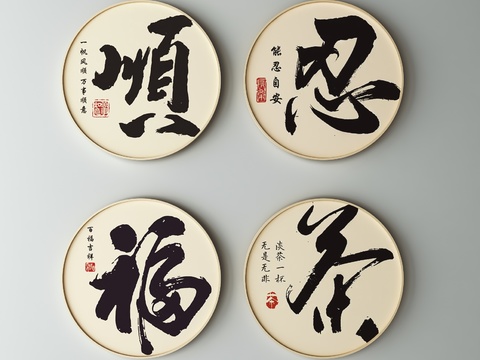 順
一帆风顺 万事顺意
忍
能忍自安
福
百福吉祥
茶
淡茶一杯
无是无非